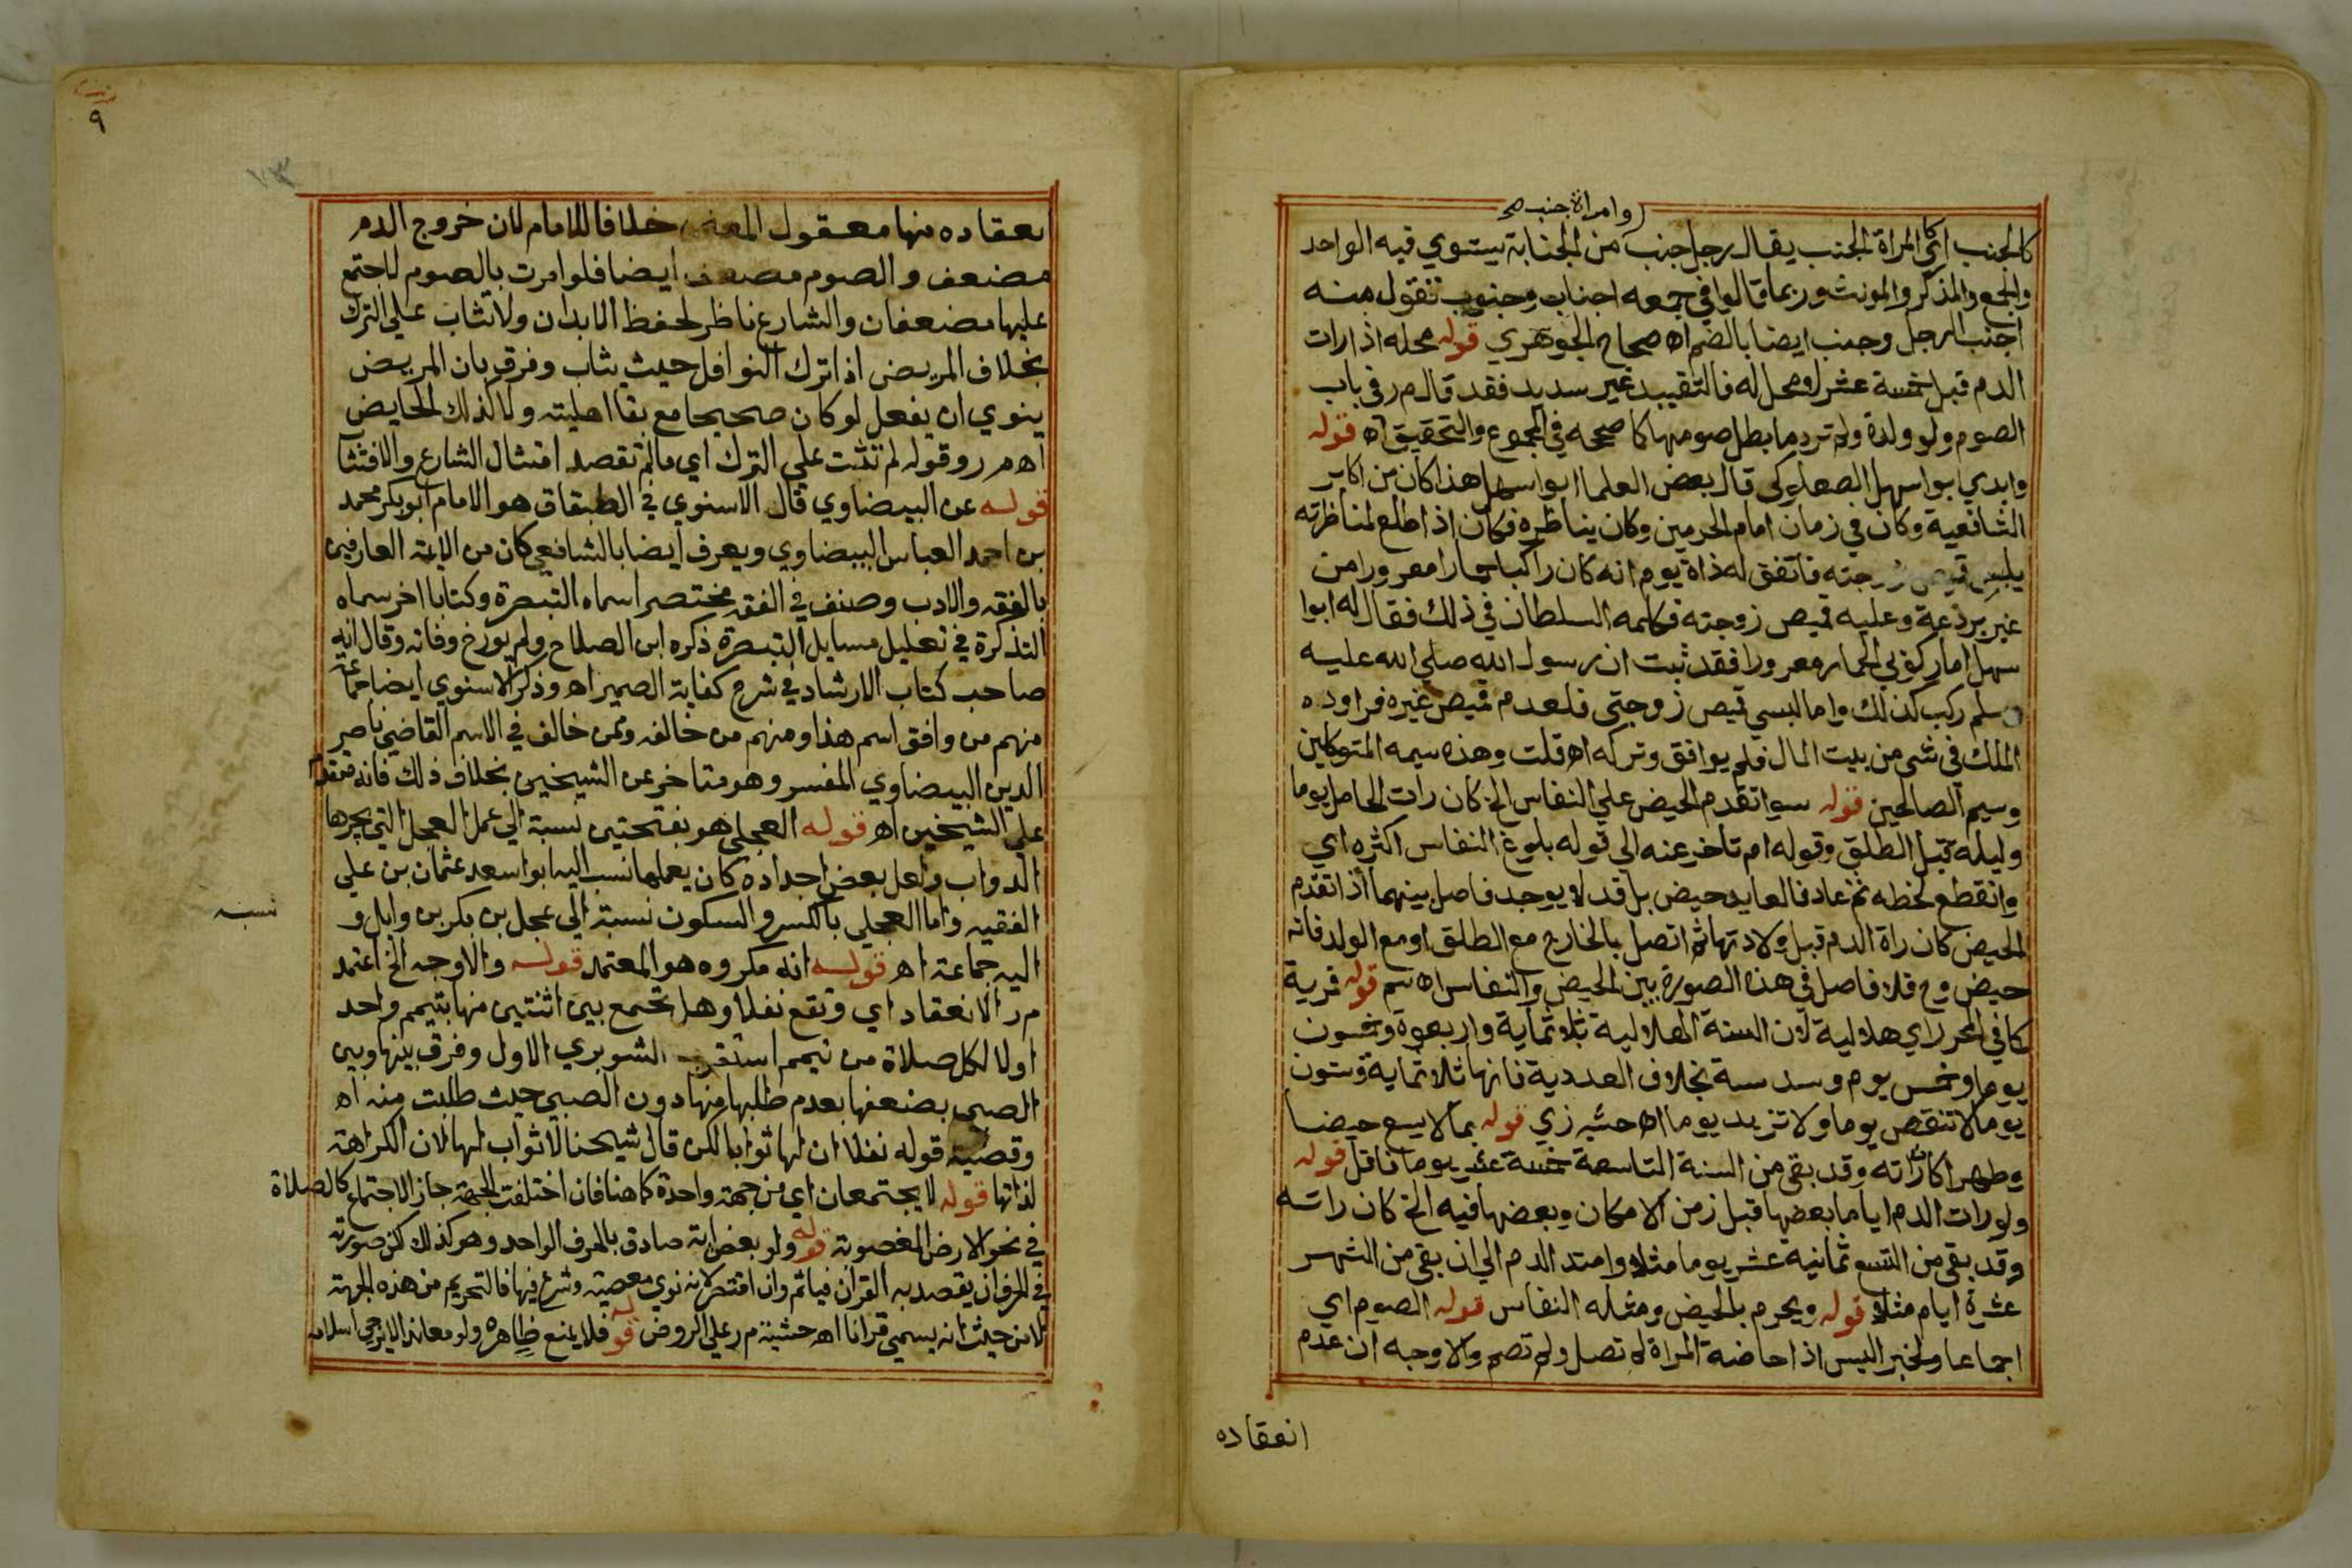 وامراة جنب صح
كالجنب اي كالمراة الجنب يقال رجل جنب من الجنابة يستوي فيه الواحد
والجمع والمذكر والمونث وربما قالوا في جمعه اجناب وجنوب تقول منه
اجنب الرجل وجنب ايضا بالضم اه صحاح الجوهري قوله محله اذا رات
الدم قبل خمسة عشر لا محل له فالتقييد غير سديد فقد قال م ر في باب
الصوم ولو ولدة ولم تر دما بطل صومها كما صححه في المجموع والتحقيق اه قوله
وابدي ابوا سهل الصعلوكي قال بعض العلما ابوا سهل هذا كان من اكابر
الشافعية وكان في زمان امام الحرمين وكان يناظره فكان اذا طلع لمناظرته
يلبس قميص زوجته فاتفق له ذاة يوم انه كان راكبا حمارا معرورا من
غير برذعة وعليه قميص زوجته فكلمه السلطان في ذلك فقال له ابوا
سهل اما ركوبي الحمار معرورا فقد ثبت ان رسول الله صلي الله عليه
وسلم ركب كذلك واما لبسي قميص زوجتي فلعدم قميص غيره فراوده
الملك في شي من بيت المال فلم يوافق وتركه اه قلت وهذه سيمه المتوكلين
وسيم الصالحين قوله سوا تقدم الحيض علي النفاس الخ كان رات الحامل يوما
وليلة قبل الطلق وقوله ام تاخر عنه الي قوله بلوغ النفاس اكثره اي
وانقطع لحظه ثم عاد فالعايد حيض بل قد لا يوجد فاصل بينهما اذا تقدم
الحيض كان راة الدم قبل ولادتها ثم اتصل بالخارج مع الطلق او مع الولد فانه
حيض وح فلا فاصل في هذه الصورة بين الحيض والنفاس اه سم قوله قرية
كما في المحرر اي هلالية لان السنة الهلالية ثلاثماية واربعة وخمسون
يوما وخمس يوم وسدسة بخلاف العددية فانها ثلاثماية وستون
يوما لا تنقص يوما ولا تزيد يوما اه حشيه زي قوله بما لا يسع حيضا
وطهرا كان راته وقد بقي من السنة التاسعة خمسة عشر يوما فاقل قوله
ولو رات الدم اياما بعضها قبل زمن الامكان وبعضها فيه الخ كان راته
وقد بقي من التسع ثمانية عشر يوما مثلا وامتد الدم الي ان بقي من الشهر
عشرة ايام مثلا قوله ويحرم بالحيض ومثله النفاس قوله الصوم اي
اجماعا ولخبر اليس اذا حاضة المراة لم تصل ولم تصم والاوجه ان عدم
انعقاده
٩
نعقاده منها معقول المعني خلافا للامام لان خروج الدم
مضعف والصوم مضعف ايضا فلو امرت بالصوم لاجتمع
عليها مضعفان والشارع ناظر لحفظ الابدان ولا تثاب علي الترك
بخلاف المريض اذا ترك النوافل حيث يثاب وفرق بان المريض
ينوي ان يفعل لو كان صحيحا مع بقا اهليته ولا كذلك الحايض
اه م ر وقوله لم تثبت علي الترك اي ما لم تقصد امتثال الشارع والا فتثا
قوله عن البيضاوي قال الاسنوي في الطبقاق هو الامام ابو بكر محمد
بن احمد العباس البيضاوي ويعرف ايضا بالشافعي كان من الايمة العارفين
بالفقه والادب وصنف في الفقه مختصر اسماه التبصرة وكتابا اخر سماه
التذكرة في تعليل مسايل التبصرة ذكره ابن الصلاح ولم يورخ وفاته وقال انه
صاحب كتاب الارشاد في شرح كفاية الصميراه وذكر الاسنوي ايضا جماعة
منهم من وافق اسم هذا ومنهم من خالفه وممن خالف في الاسم القاضي ناصر
الدين البيضاوي المفسر وهو متاخر عن الشيخين بخلاف ذلك فانه متقدم
علي الشيخين اه قوله العجلي هو بفتحتين نسبة الي عمل العجل التي يجرها
الدواب ولعل بعض اجداده كان يعملها نسب اليه ابوا سعد عثمان بن علي
الفقيه واما العجلي بالكسر والسكون نسبة الي عجل بن بكر بن وايل و
نسبه
اليه جماعة اه قوله انه مكروه هو المعتمد قوله والاوجه الخ اعتمد
م ر الانعقاد اي وتقع نفلا وهل تجمع بين اثنتين منها بتيمم واحد
اولا لكل صلاة من تيمم استقرب الشوبري الاول وفرق بينها وبين
الصبي بضعفها بعدم طلبها منها دون الصبي حيث طلبت منه اه
وقضية قوله نفلا ان لها ثوابا لكن قال شيخنا لا ثواب لها لان الكراهة
لذاتها قوله لا يجتمعان اي من جهة واحدة كما هنا فان اختلفت الجهة جاز الاجتماع كالصلاة
في نحو الارض المغصوبة قوله ولو بعض اية صادق بالحرف الواحد وهو كذلك لكن صورته
في الحرف ان يقصد به القران فياثم وان اقتصر لانه نوي معصية وشرع فيها فالتحريم من هذه الجهة
لا من حيث انه يسمي قرانا اه حشية م ر علي الروض قوله فلا يمنع ظاهره ولو معاندا لا يرجي اسلامه